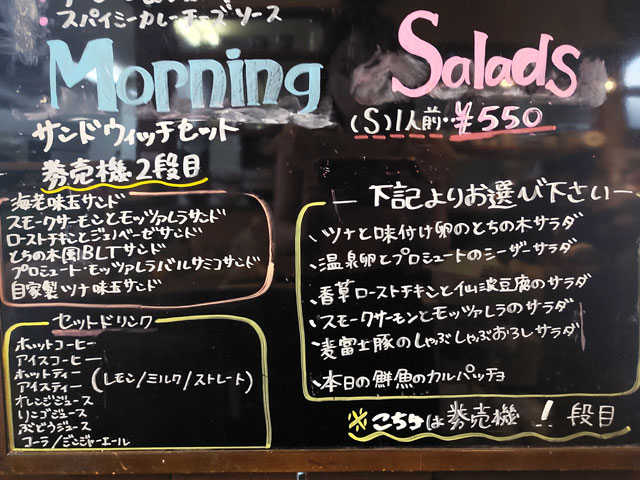 ・スパイシーカレーチーズソース
Morning
サンドウィッチセット
券売機2段目
海老味玉サンド
スモークサーモンとモッツァレラサンド
ローストチキンとジェノベーゼサンド
とちの木園BLTサンド
プロシュート・モッツァレラバルサミコサンド
自家製ツナ味玉サンド
セットドリンク
ホットコーヒー
アイスコーヒー
ホットティー
アイスティー (レモン/ミルク/ストレート)
オレンジジュース
りんごジュース
ぶどうジュース
コーラ/ジンジャーエール
Salads
(S)1人前‥¥550
― 下記よりお選び下さい ―
・ツナと味付け卵のとちの木サラダ
・温泉卵とプロシュートのシーザーサラダ
・香草ローストチキンと仙波豆腐のサラダ
・スモークサーモンとモッツァレラのサラダ
・麦富士豚のしゃぶしゃぶおろしサラダ
・本日の鮮魚のカルパッチョ
※こちらは券売機 1段目